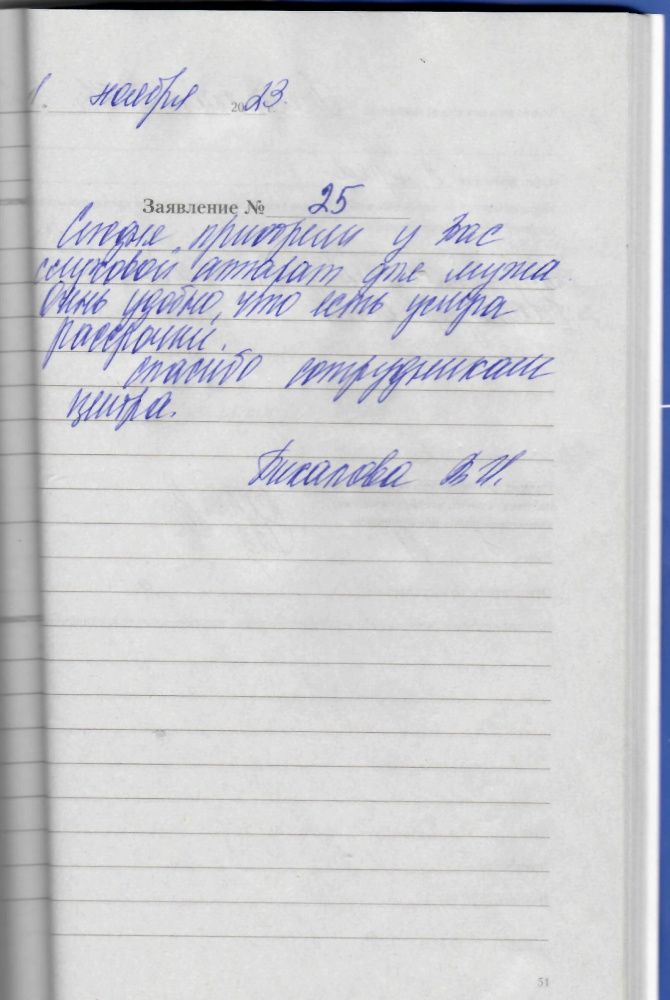 1 ноября 2023.
Заявление № 25
Сегодня приобрели у Вас
слуховой аппарат для мужа.
Очень удобно, что есть услуга
рассрочки.
Спасибо сотрудникам
центра.
В. И.
51